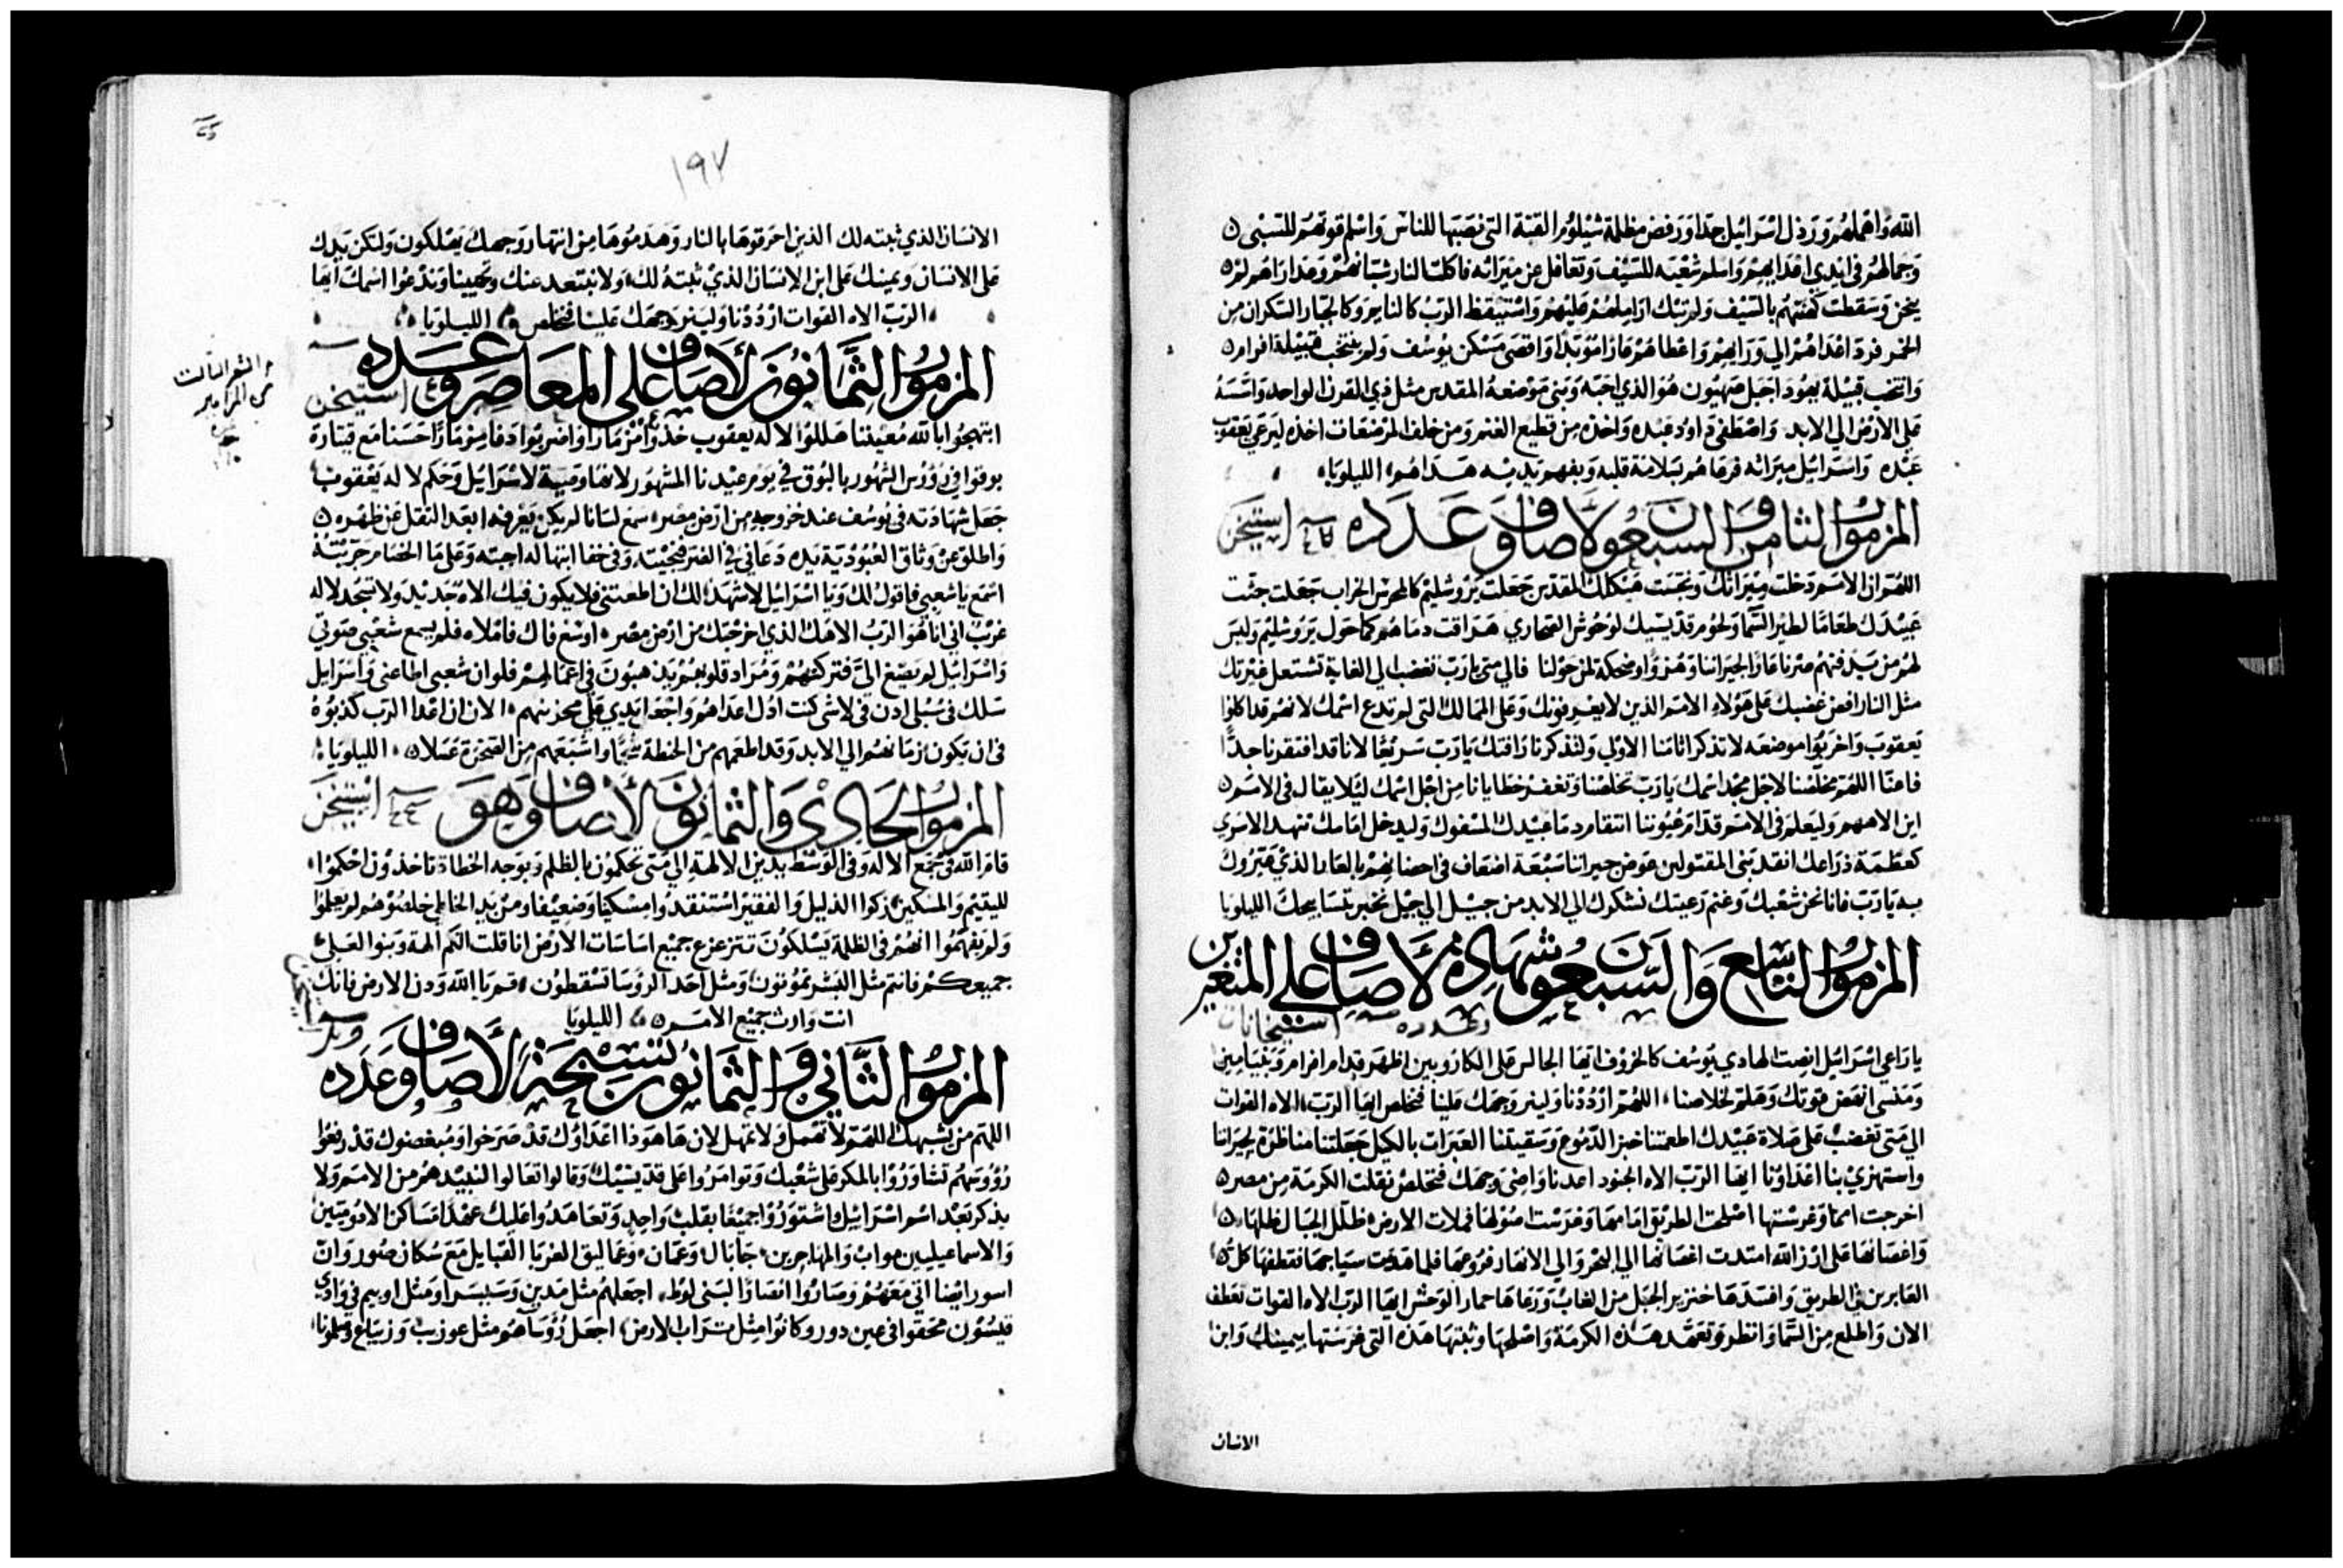 الله واهملهم ورذل اسرائيل جدا ورفض مظلة شيلوم القبة التي نصبها للناس واسلم قوتهم للسبي
وجمالهم في ايدي اعدايهم واسلم شعبه للسيف وتغافل عن ميراثه فاكلت النار شبانهم وعذاراهم لم
يحزن وسقطت كهنتهم بالسيف ولم تبك اراملهم عليهم واستيقظ الرب كالنايم وكالجبار السكران من
الخمر فرد اعداهم الي ورايهم واعطاهم عارا مؤبدا واقصي مسكن يوسف ولم ينتخب قبيلة افرام
وانتخب قبيلة يهودا جبل صهيون هو الذي احبه وبني موضعه المقدس مثل ذي القرن الواحد واسسه
علي الارض الي الابد واصطفي داود عبده واخذه من قطيع الغنم ومن خلف المرضعات اخذه ليرعي يعقوب
عبده واسرائيل ميراثه فرعاهم بسلامة قلبه وبفهم يديه هداهم الليلويا
المزمور الثامن والسبعون لأصاف وعدده استيخن
اللهم ان الامم دخلت ميراثك ونجست هيكلك المقدس جعلت يروشليم كالمحرس الخراب جعلت جثت
عبيدك طعاما لطير السما ولحوم قديسيك لوحوش الصحاري هراقت دماهم كما حول يروشليم وليس
لهم من يدفنهم صرنا عارا لجيراننا وهزوا وضحكة لمن حولنا فالي متي يارب تغضب الي الغاية تشتعل غيرتك
مثل النار افض غضبك علي هؤلاء الامم الذين لا يعرفونك وعلي الممالك التي لم تدع اسمك لانهم قد اكلوا
يعقوب واخربوا موضعه لا تذكر اثامنا الاولي ولتدركنا رافتك يارب سريعا لاننا قد افتقرنا جدا
فاعنا اللهم مخلصنا لاجل مجد اسمك يارب تخلصنا وتغفر خطايانا من اجل اسمك ليلا يقال في الامم
اين الاههم وليعلم في الامم قدام عيوننا انتقام دما عبيدك المسفوك وليدخل امامك تنهد الاسري
كعظمة ذراعك انقد بني المقتولين عوض جيراننا سبعة اضعاف في احضانهم بالعار الذي عيروك
به يارب فاننا نحن شعبك وغنم رعيتك نشكرك الي الابد من جيل الي جيل نخبر بتسابيحك الليلويا
المزمور التاسع والسبعون شهادة لأصاف علي المتغيرين
وعدده استيخانات
يا راعي اسرائيل انصت الهادي يوسف كالخروف ايها الجالس علي الكاروبين اظهر قدام افرام وبنيامين
ومنسي انهض قوتك وهلم لخلاصنا اللهم ارددنا ولينر وجهك علينا فنخلص ايها الرب الاه القوات
الي متي تغضب علي صلاة عبيدك اطعمتنا خبز الدموع وسقيتنا العبرات بالكيل جعلتنا مناظرة لجيراننا
واستهزي بنا اعداؤنا ايها الرب الاه الجنود اعدنا واضئ وجهك فنخلص نقلت الكرمة من مصر
اخرجت امما وغرستها اصلحت الطريق امامها وغرست اصولها فملات الارض ظلل الجبال ظلها
واغصانها علي ارز الله امتدت اغصانها الي البحر والي الانهار فروعها فلما هدمت سياجها فقطفها كل
العابرين في الطريق وافسدها خنزير الجبل من الغاب ورعاها حمار الوحش ايها الرب الاه القوات تعطف
الان واطلع من السما وانظر وتعهد هذه الكرمة واصلحها وثبتها هذه التي غرستها يمينك وابن
الانسان
١٩٧
الانسان الذي ثبته لك الذين احرقوها بالنار وهدموها من انتهار وجهك يهلكون ولتكن يدك
علي الانسان وعينك علي ابن الانسان الذي ثبته لك ولا نبتعد عنك وتحيينا وندعوا اسمك ايها
الرب الاه القوات ارددنا ولينر وجهك علينا فنخلص الليلويا
المزمور الثمانون لأصاف علي المعاصر وعدده استيخن
ابتهجوا بالله معيننا هللوا لاله يعقوب خذوا مزمارا واضربوا دفا مزمارا حسنا مع قيتارة
بوقوا في رؤوس الشهور بالبوق في يوم عيدنا المشهور لانها وصية لاسرائيل وحكم لاله يعقوب
جعل شهادته في يوسف عند خروجه من ارض مصر سمع لسانا لم يكن يعرفه ابعد الثقل عن ظهره
واطلق من وثاق العبودية يده دعاني في الضر فنجيته وفي خفا
اسمع يا شعبي فاقول لك ويا اسرائيل لاشهد لك ان اطعتني فلا يكون فيك الاه جديد ولا تسجد لاله
غريب اني انا هو الرب الاهك الذي اخرجتك من ارض مصر اوسع فاك فاملاه فلم يسمع شعبي صوتي
واسرائيل لم يصغ الي فتركتهم ومراد قلوبهم يذهبون في اعمالهم فلو ان شعبي اطاعني واسرايل
سلك في سبلي اذن في لاشي كنت اذل اعداهم واجعل يدي علي محزنيهم الان ان اعدا الرب كذبوه
في ان يكون زمانهم الي الابد وقد اطعمهم من الحنطة شحما واشبعهم من الصخرة عسلا الليلويا
المزمور الحادي والثمانون لأصاف وهو استيخن
قام الله في مجمع الالهة وفي الوسط يدين الالهة الي متي تحكمون بالظلم وبوجه الخطاة تاخذون احكموا
لليتيم والمسكين زكوا الذليل والفقير استنقدوا مسكينا وضعيفا ومن يد الخاطي خلصوهم لم يعلموا
ولم يفهموا انهم في الظلمة يسلكون تتزعزع جميع اساسات الارض انا قلت انكم الهة وبنوا العلي
جميعكم فانتم مثل البشر تموتون ومثل احد الرؤسا تسقطون قم يا الله ودن الارض فانك
انت وارث جميع الامم الليلويا
المزمور الثاني والثمانون تسبحة لأصاف وعدده
اللهم من يشبهك اللهم لا تهمل ولا تمهل لان هاهوذا اعداوك قد صرخوا ومبغضوك قد رفعوا
رؤوسهم تشاوروا بالمكر علي شعبك وتوامروا علي قديسيك وقالوا تعالوا لنبيدهم من الامم ولا
يذكر بعد اسم اسرائيل اشتوروا جميعا بقلب واحد وتعاهدوا عليك عهدا مساكن الادوميين
والاسماعيليين مواب والمهاجرين جابال وعمان وعماليق الغربا القبايل مع سكان صور وان
اسور ايضا اتي معهم وصاروا انصارا لبني لوط اجعلهم مثل مدين وسيسرا ومثل اوبيم في وادي
قيسون محقوا في عين دور وكانوا مثل تراب الارض اجعل رؤساهم مثل عوزيب وزيباع وصلمونا